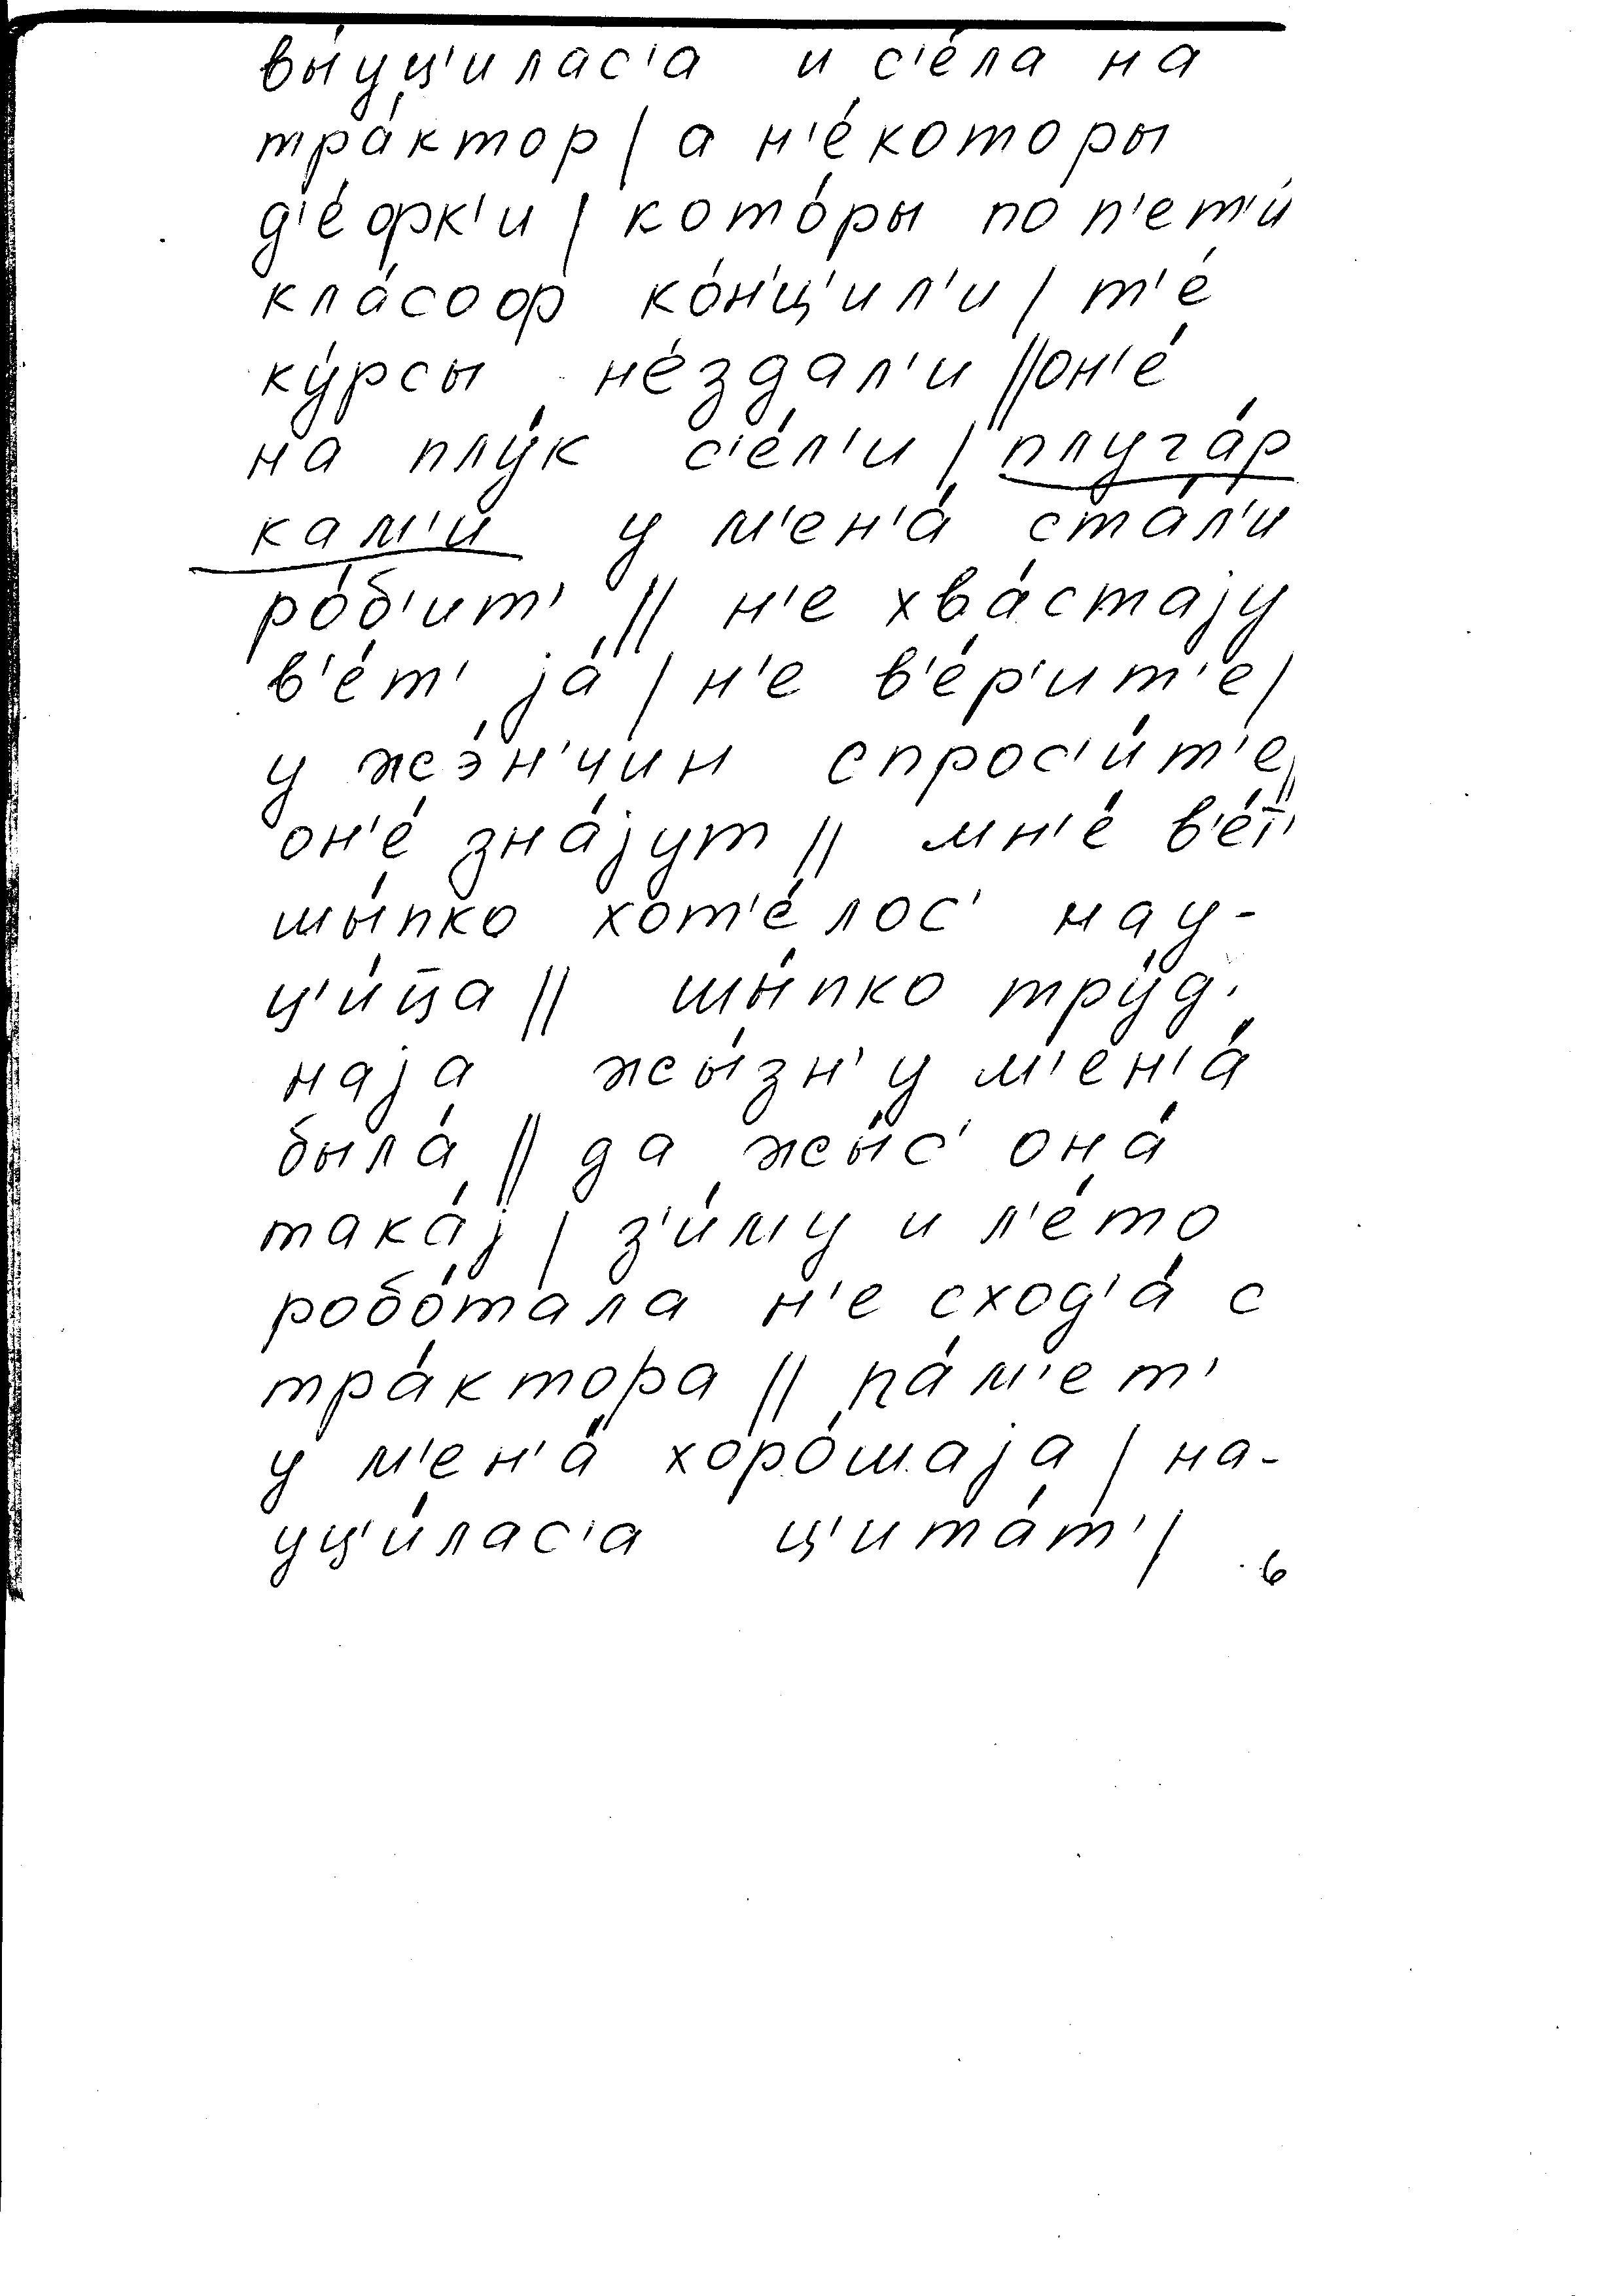 вы́уц'илас'а и с'е́ла на
тра́ктор | а н'е́которы
д'е́фк'и | кото́ры по п'ет'и́
кла́соф ко́н'ц'ил'и | т'е́
ку́рсы не́здал'и || он'е́
на плу́к с'е́л'и | плуга́р
кам'и у м'ен'а́ ста́л'и
ро́б'ит' || н'е хва́стају
в'е́т' ја́ | н'е в'е́р'ит'е |
у жэ́н'чин спрос'и́т'е ||
он'е́ зна́јут || мн'е́ в'е́т'
шы́пко хот'е́лос' нау-
ц'и́ц̅а || шы́пко тру́д-
наја жы́зн' у м'ен'а́
была́ || да жы́с' она́
така́ј | з'и́му и л'е́то
робо́тала н'е сход'а́ с
тра́ктора || па́м'ет'
у м'ен'а́ хоро́шаја | на-
уц'и́лас'а ц'ита́т' |
6